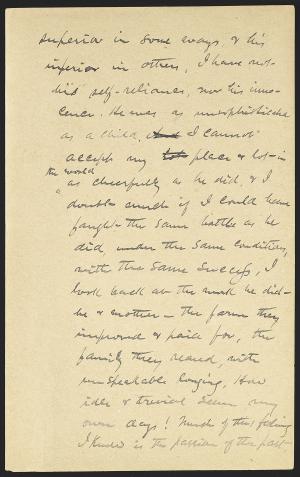 superior in some ways, & his
inferior in others, I have not
his self-reliance, nor his inno-
cence. He was as unsophisticated
as a child. I cannot
accept my place & lot in
the world
as cheerfully as he did, & I
doubt much if I could have
fought the same battle as he
did, under the same conditions,
with the same success. I
look back at the work he did -
he & mother - the farm they
improved & paid for, the
family they reared, with
unspeakable longing. How
idle & trivial seem my
own days! Much of this feeling
I know is the passion of the past